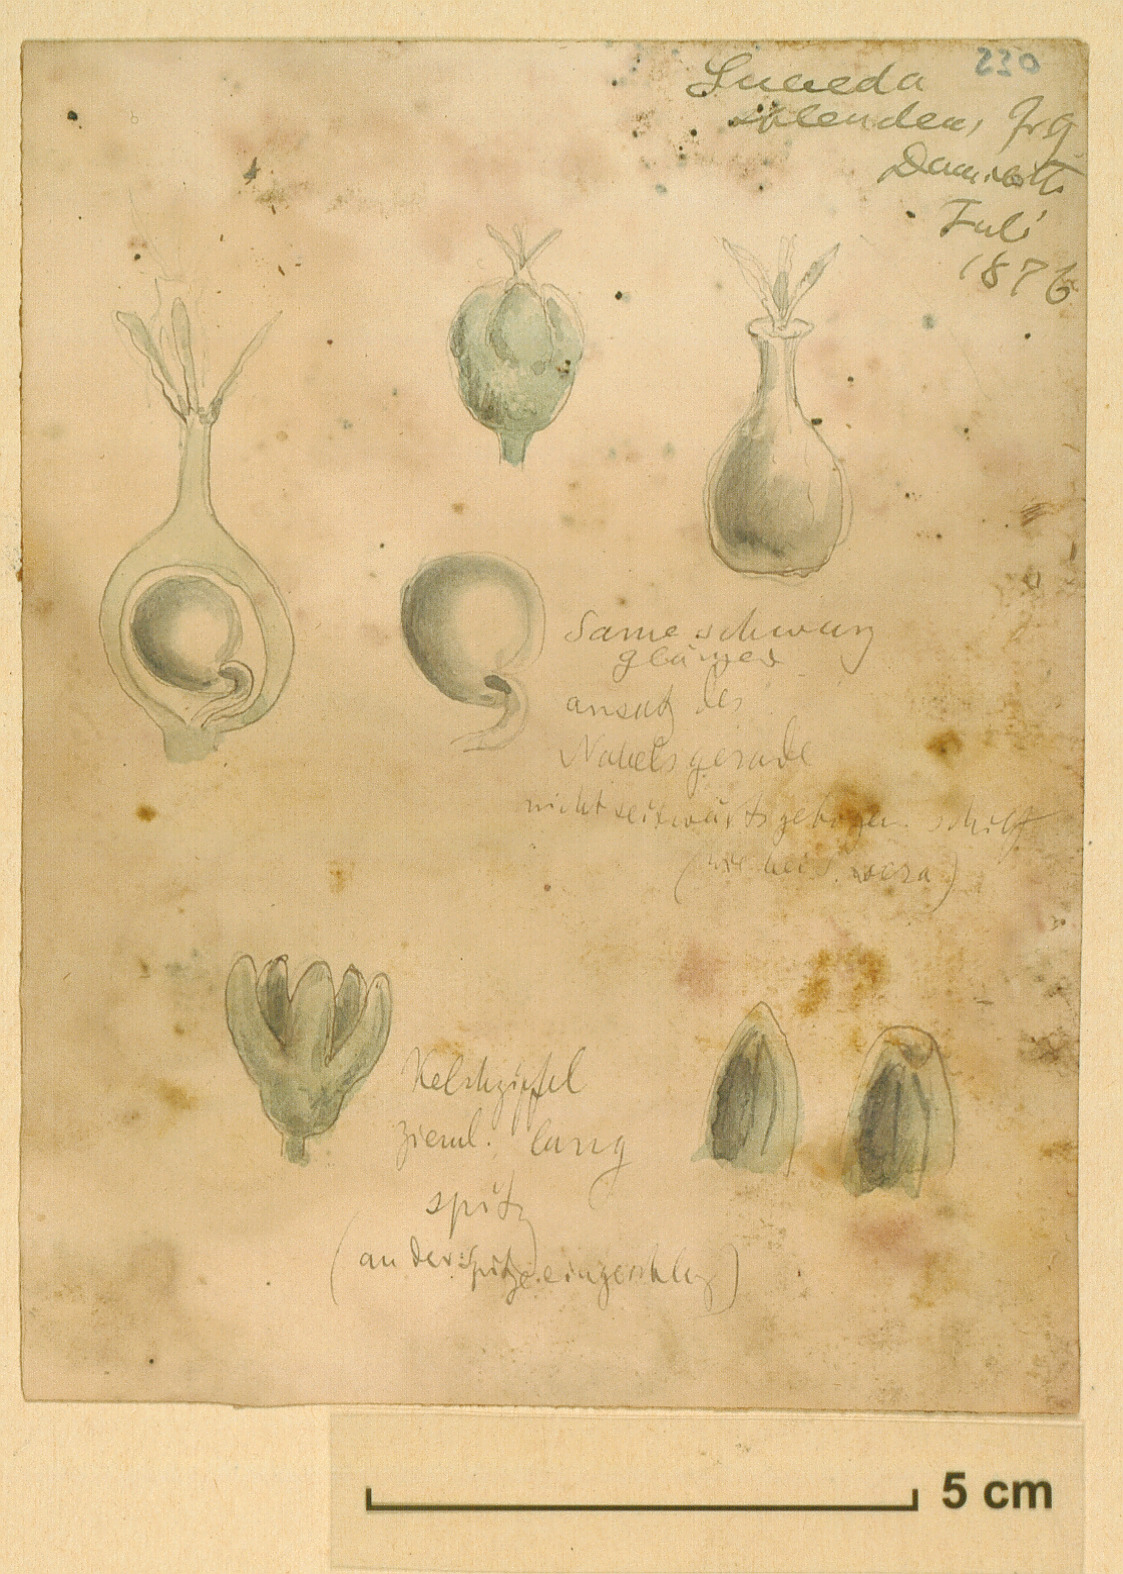 230
Suaeda
splendens, Grg
Damiette
Juli
1876
Same schwarz
glänzend
ansatz des
Nabels gerade
nicht seitwärts gebogen
(wie bei S. vera)
Kelchzipfel
zieml. lang
spitz
(an der Spitze eingeschlag)
5 cm